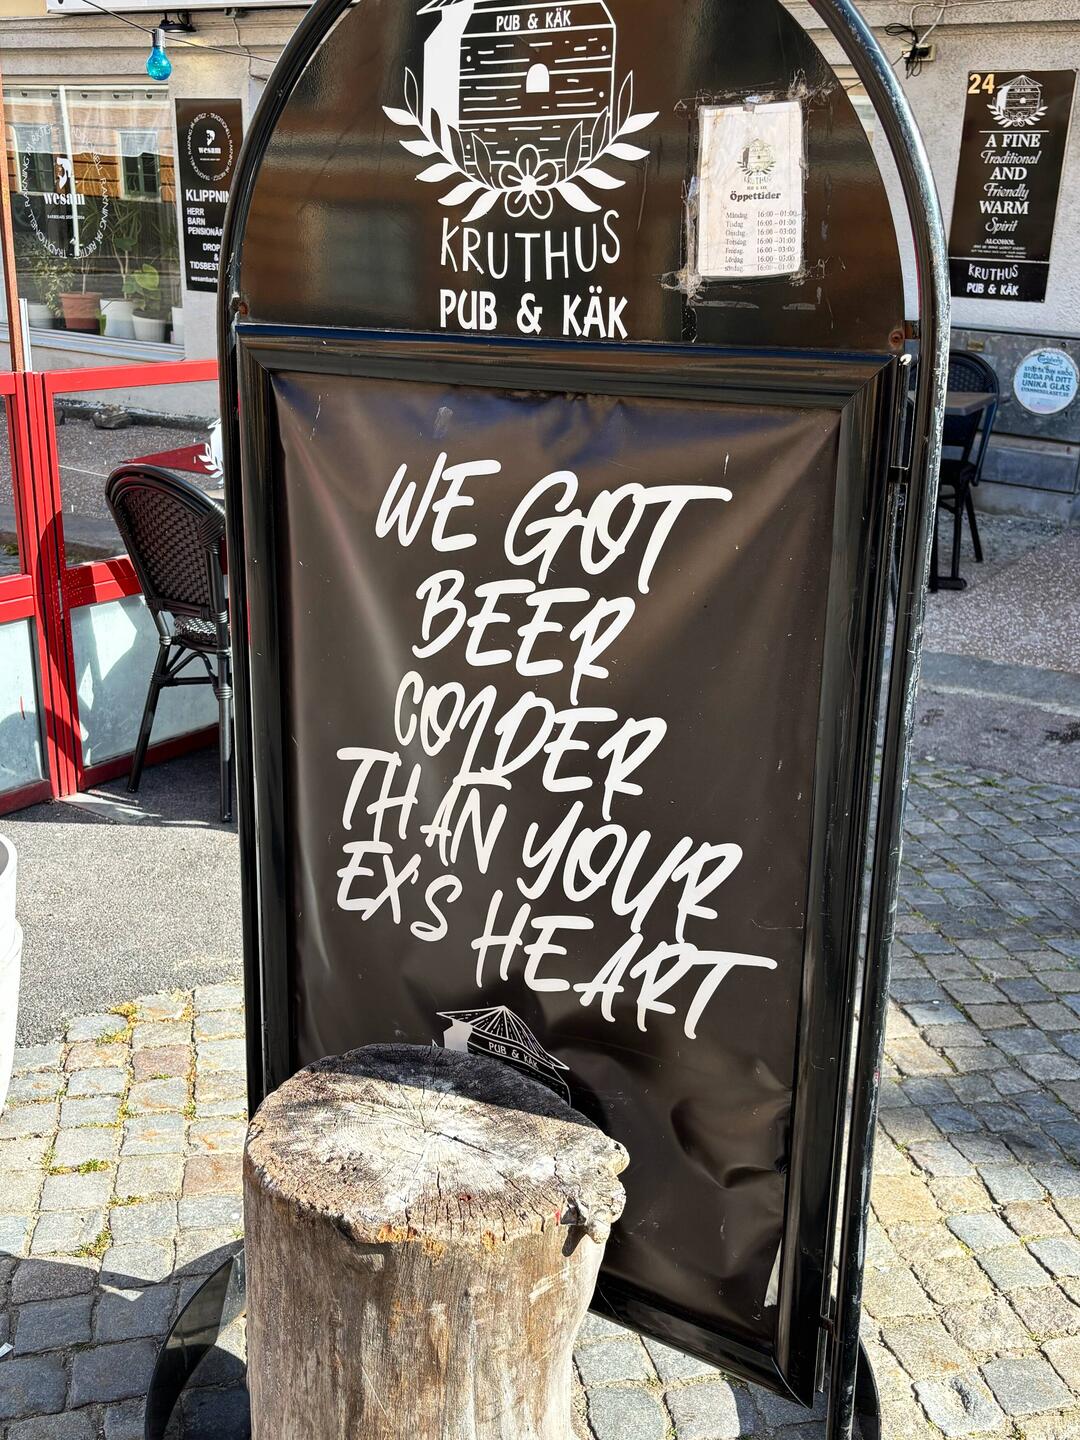 PUB & KÄK
KRUTHUS
PUB & KÄK
KRUTHUS
Öppettider
Måndag 16:00-01:00
Tisdag 16:00-01:00
Onsdag 16:00-01:00
Torsdag 16:00-01:00
Fredag 16:00-03:00
Lördag 16:00-03:00
Söndag 16:00-01:00
WE GOT
BEER
COLDER
THAN YOUR
EX'S HEART
PUB & KÄK
wesam
wesam
KLIPPNIN
HERR
BARN
PENSIONÄR
DROP
&
TIDSBEST
24
A FINE
Traditional
AND
Friendly
WARM
Spirit
ALCOHOL
KRUTHUS
PUB & KÄK
Carlsberg
BUDA PÅ DITT
UNIKA GLAS